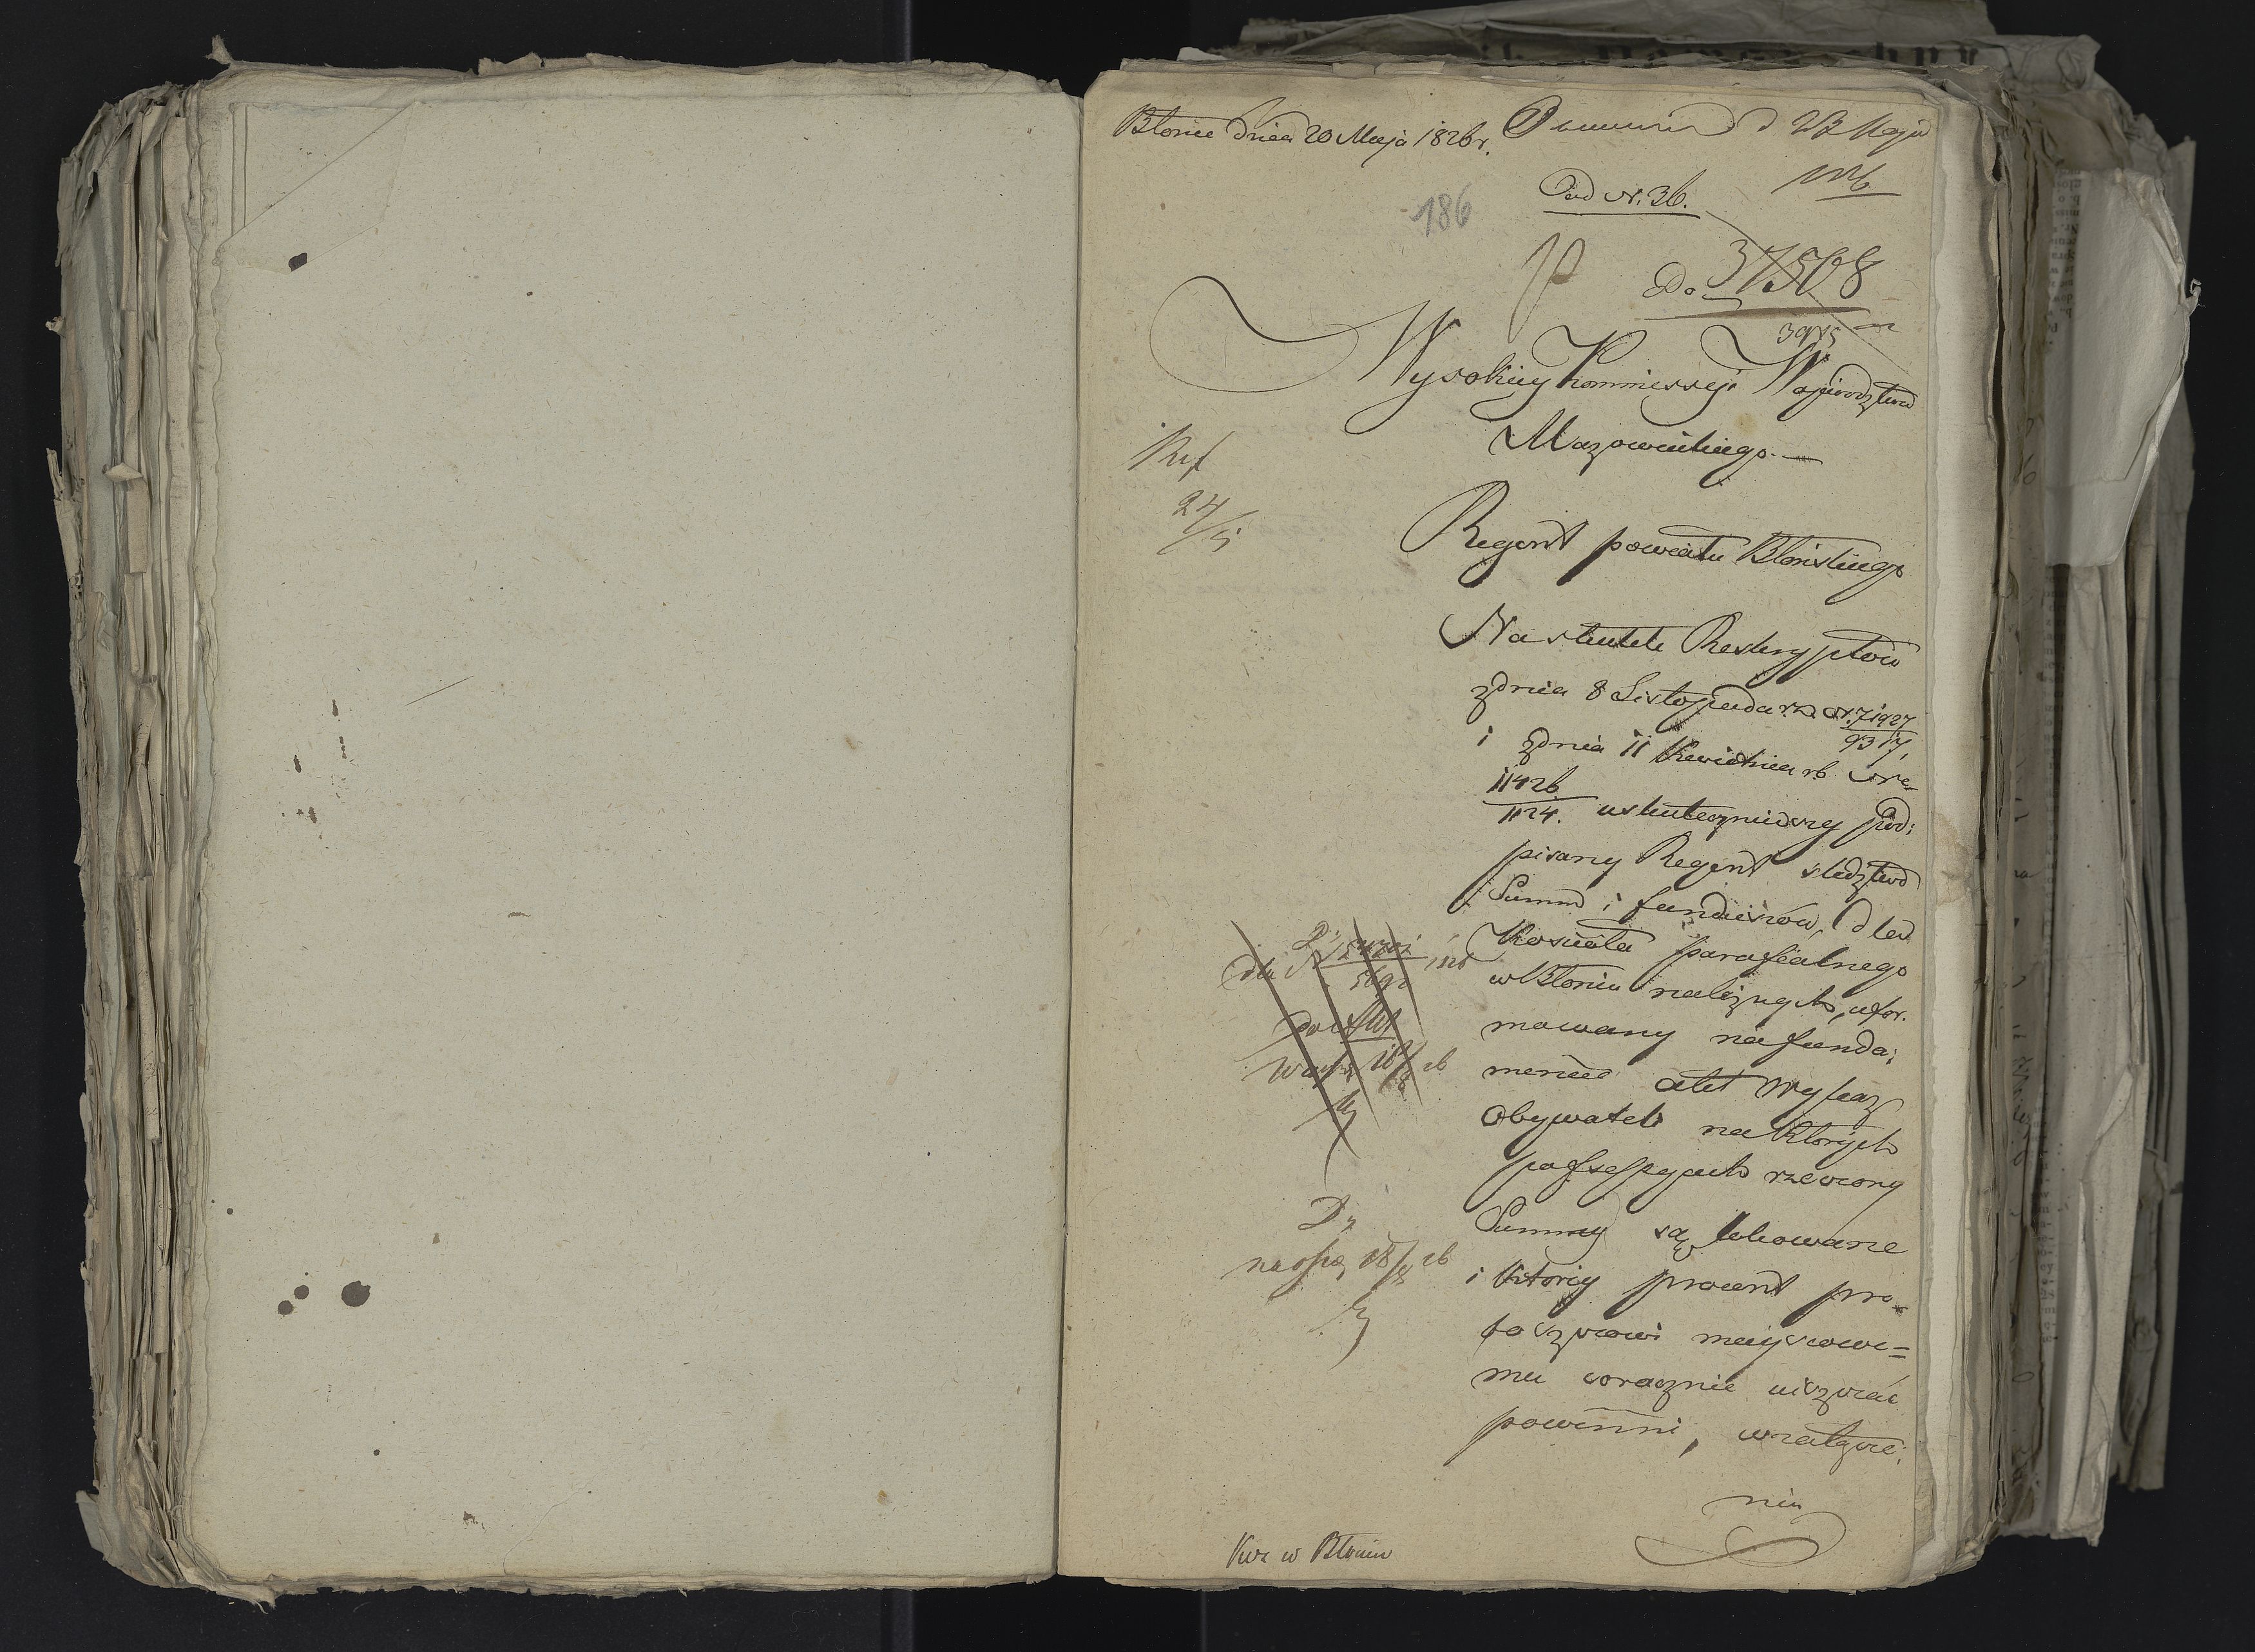 Błonie dnia 20 Maja 1826 r.
d 23 Maja
Pod N. 36.
186
37508
Do
3975
Wysokiey Kommissyi Wojewodztwa
Mazowieckiego.—
Ref
24/5
Regent powiatu Błonskiego
Na skutek Reskryptów
z dnia 8 Listopada r. z. N. 71927
9317,
i z dnia 11 Kwietnia r b. Nro
11426
1124. uskuteczniwszy pod:
pisany Regent sledztwo
Summ i funduszów, dla
Koscioła parafialnego
w Błoniu należnych, ufor.
mowany na funda:
mencie akt Wykaz
Obywateli na których
possessyach rzeczone
Summy są lokowane
i którzy procent pro-
boszczowi mieyscowe=
mu corocznie uiszczać
powinni, w załącze:
niu
18/8 26
Dz
18/8 26
Kza w Błoniu